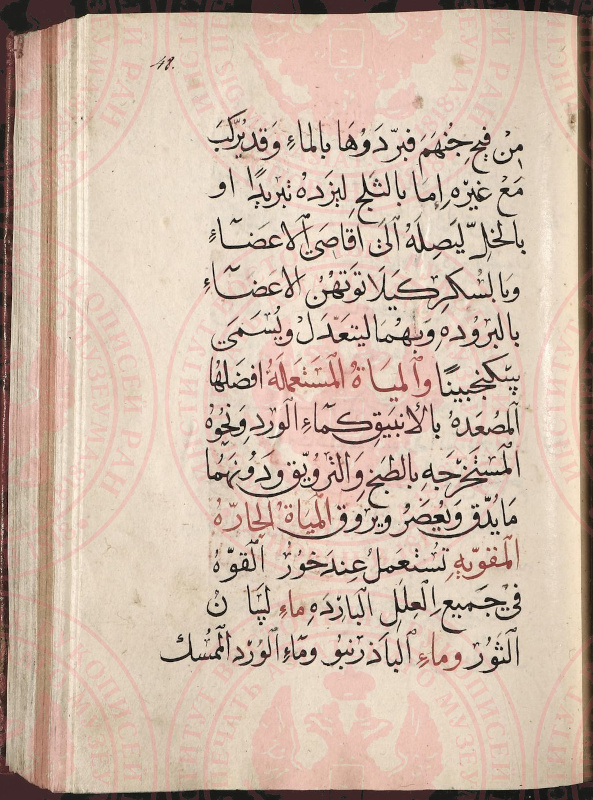 48.
من فيح جهنم فبردوها بالماء وقد يركب
مع غيره إما بالثلج ليزده تبريدا او
بالخل ليصله الى اقاصى الاعضاء
وبالسكر كيلا توهن الاعضاء
بالبروده وبهما ليتعدل ويسمى
سكنجبينا والمياة المستعملة افضلها
المصعده بالانبيق كماء الورد ونحوه
المستخرجه بالطبخ والترويق ودونهما
مايدق ويعصر ويروق المياة الحاره
المقويه تستعمل عند خور القوه
في جميع العلل البارده ماء لسان
الثور وماء الباذرنبو وماء الورد الممسك